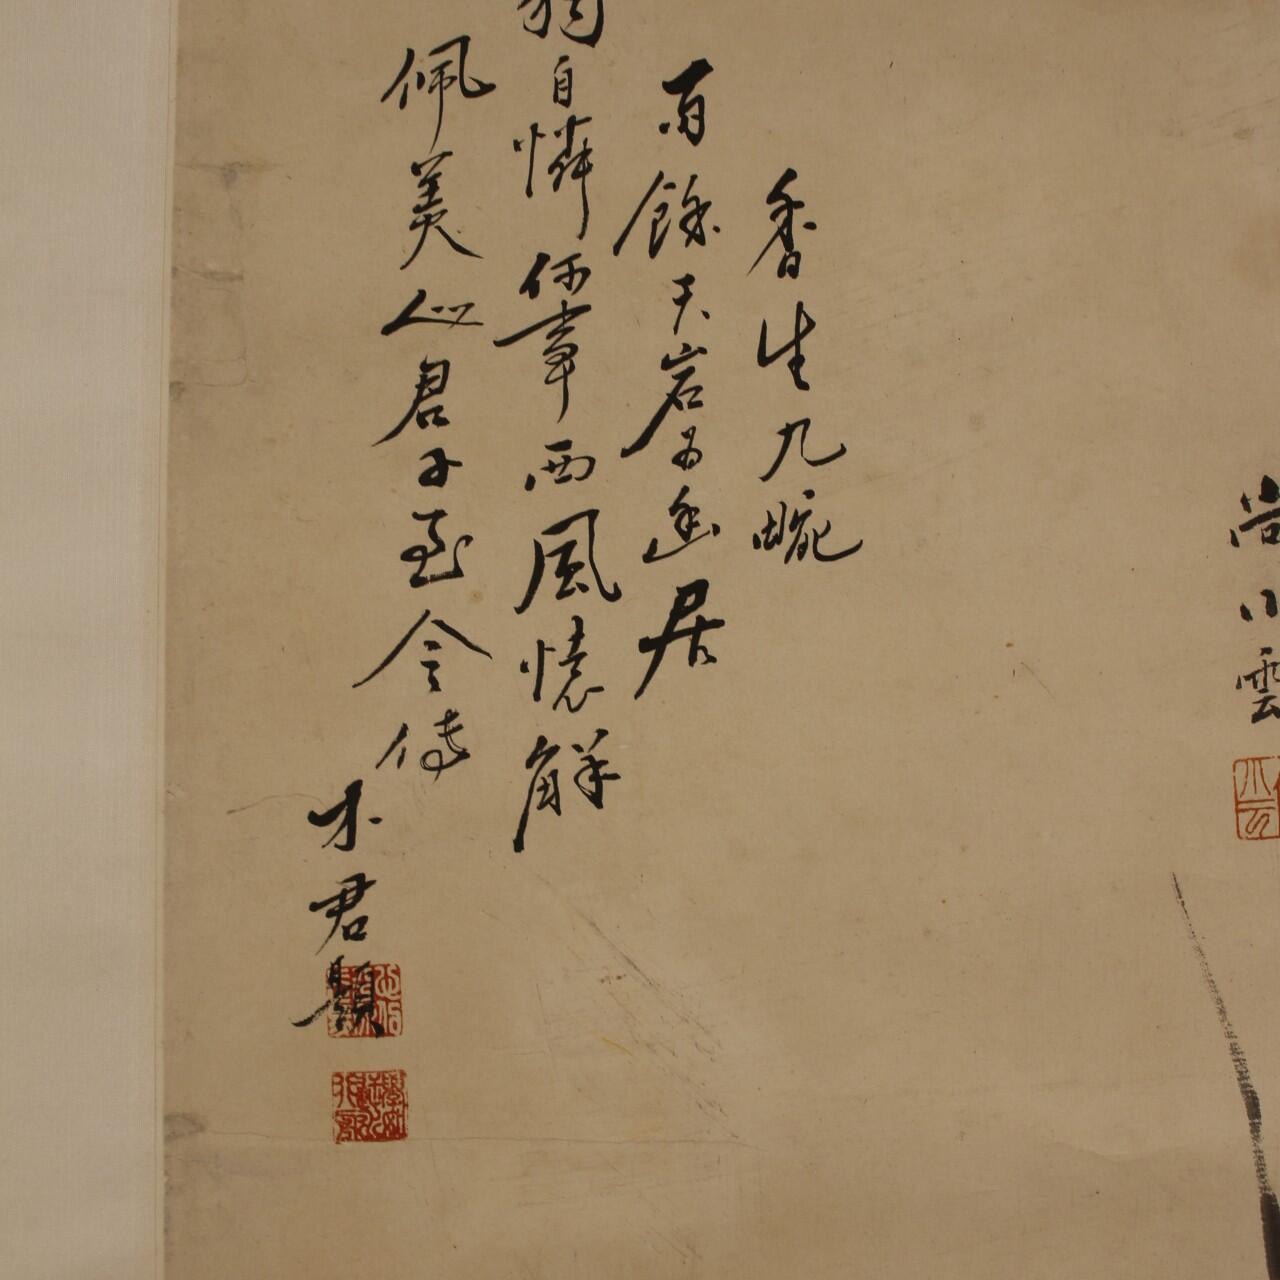 尚小雲
香生九畹
有餘天岩為幽居
獨自憐何事西風憶解
佩美人君子至今傳
木君題